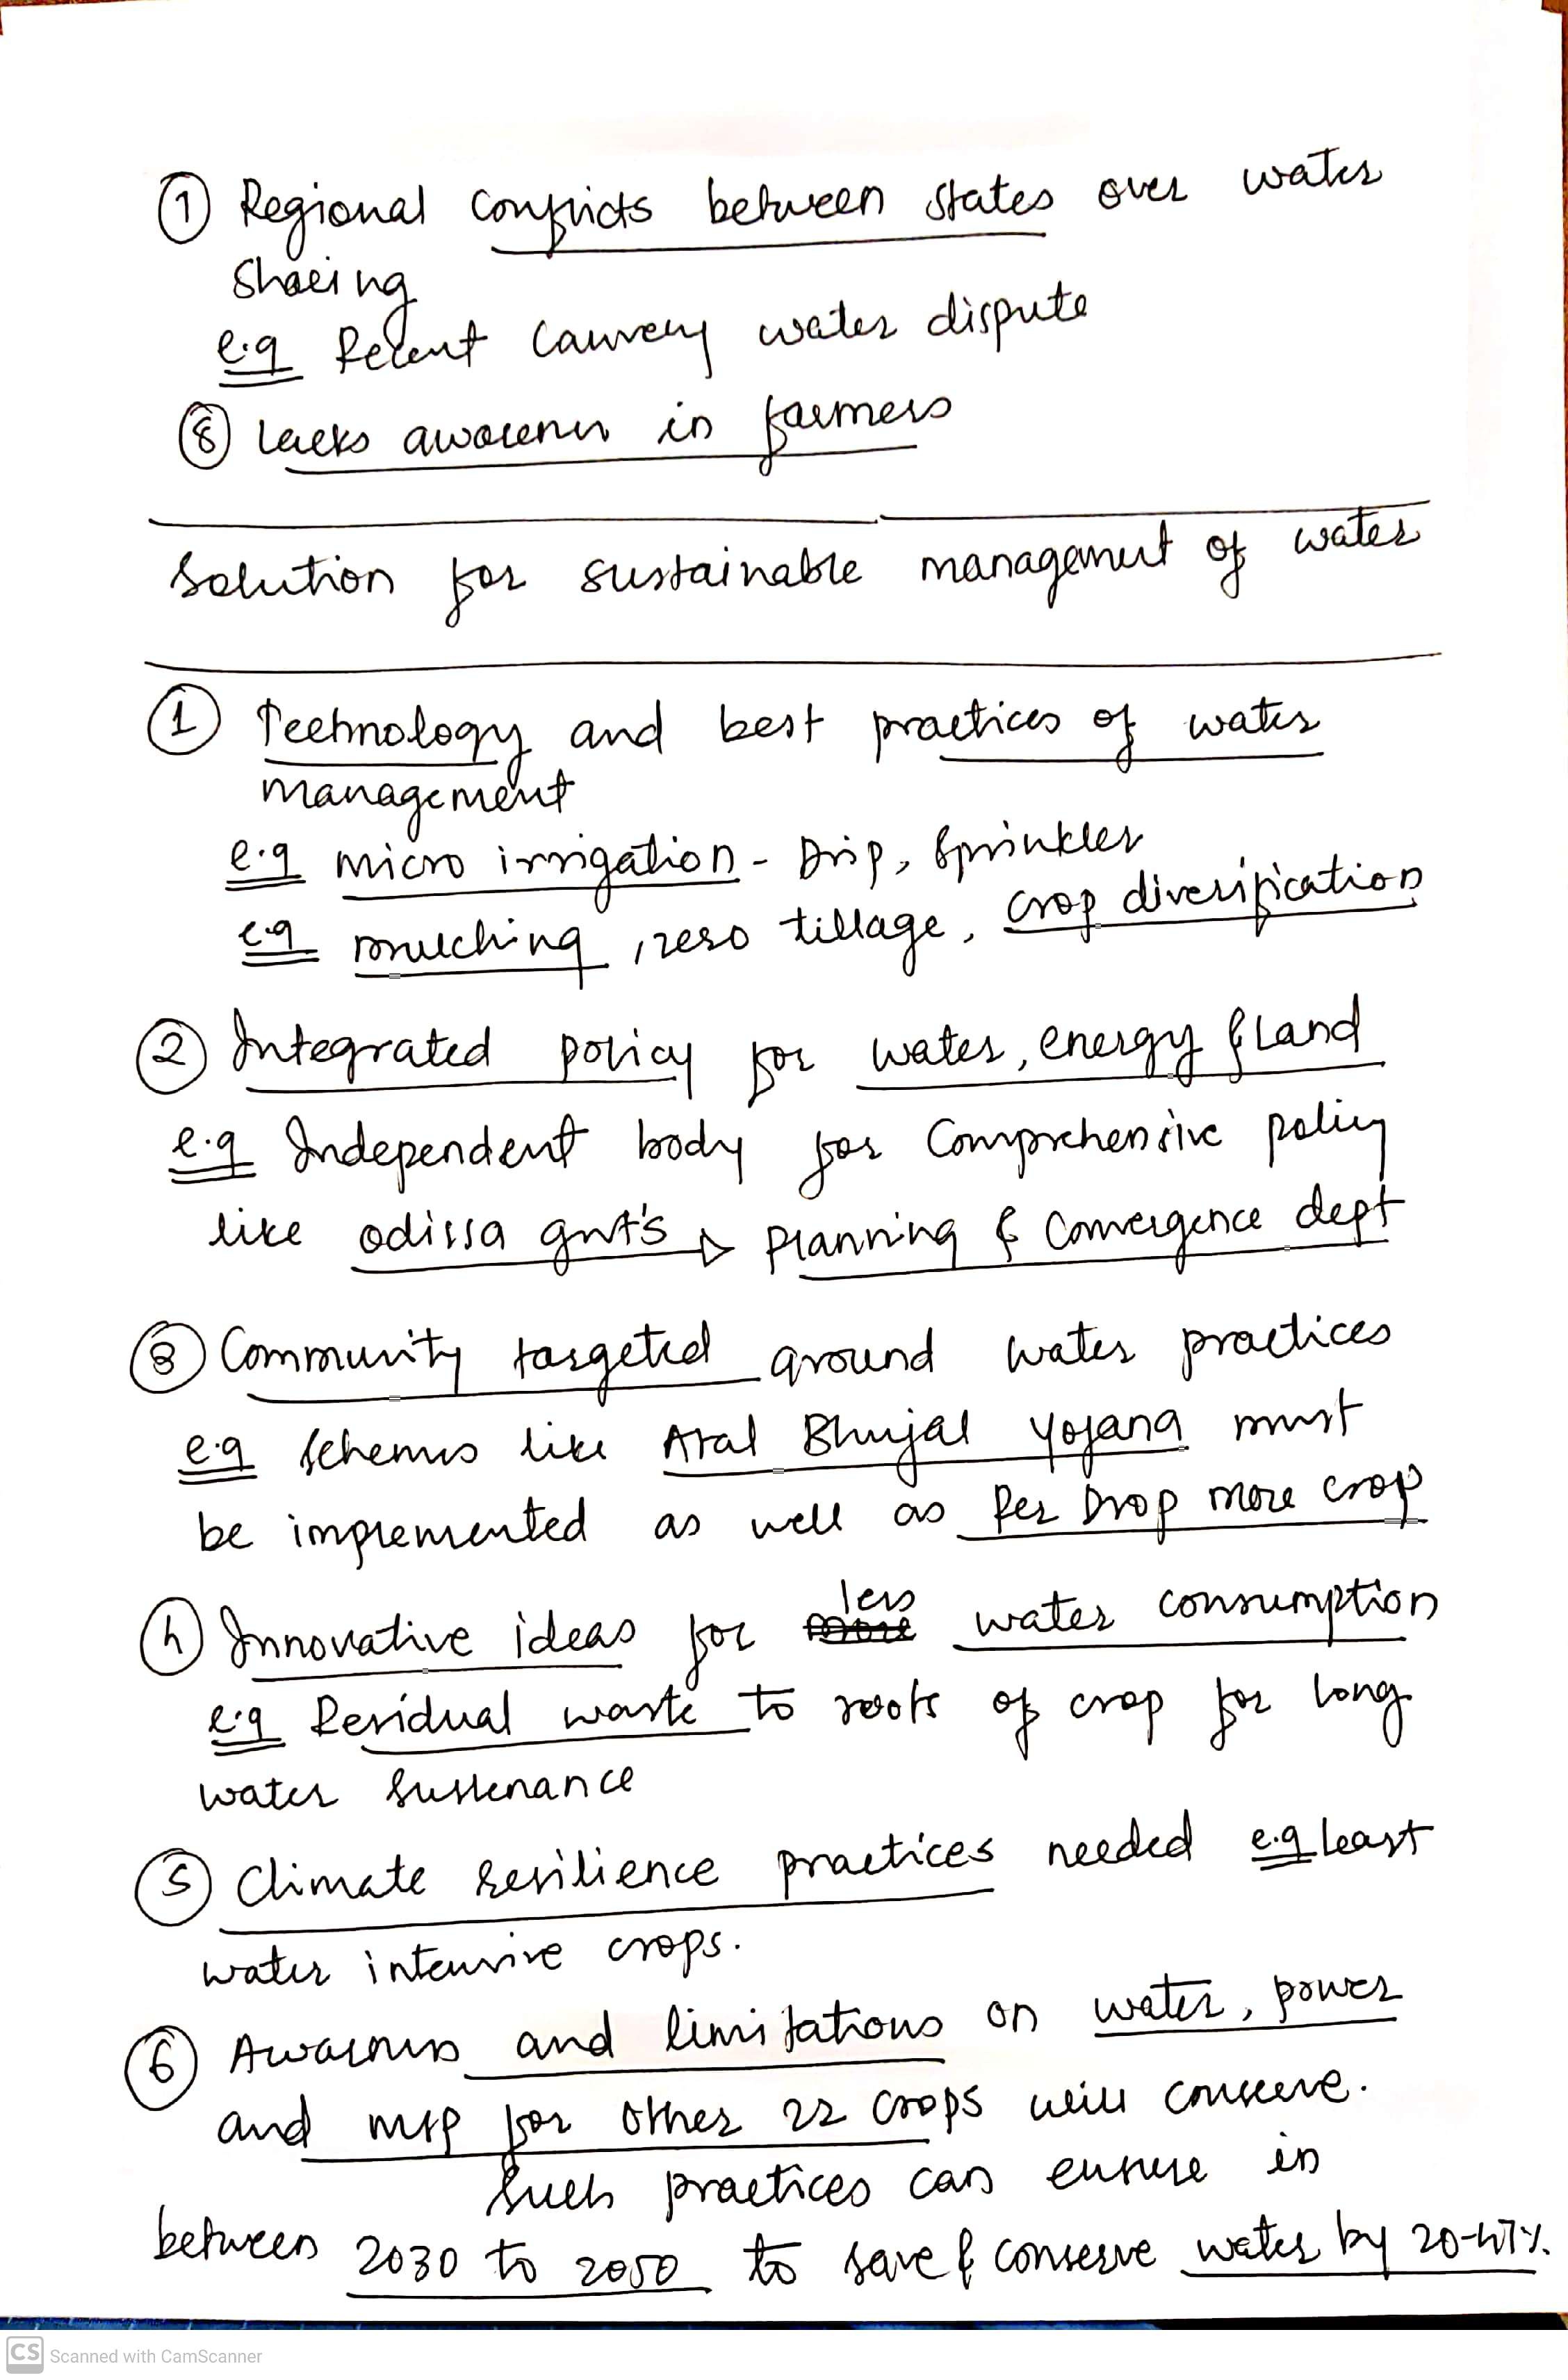 ① Regional Conflicts between states over water
sharing
e.g Recent Cauvery water dispute
⑧ Lacks awareness in farmers
Solution for sustainable management of water
① Technology and best practices of water
management
e.g micro irrigation - Drip, Sprinkler
e.g mulching, zero tillage, crop diversification
② Integrated policy for water, energy & Land
e.g Independent body for Comprehensive policy
like odissa gvt's → Planning & Convergence dept
③ Community targeted around water practices
e.g Schemes like Atal Bhujal Yojana must
be implemented as well as Per Drop more crop
④ Innovative ideas for less water consumption
e.g Residual waste to roots of crop for long
water sustenance
⑤ Climate resilience practices needed e.g least
water intensive crops.
⑥ Awareness and limitations on water, power
and MSP for other 22 crops will conserve.
Such practices can ensure in
between 2030 to 2050 to save & conserve water by 20-47%.
CS Scanned with CamScanner